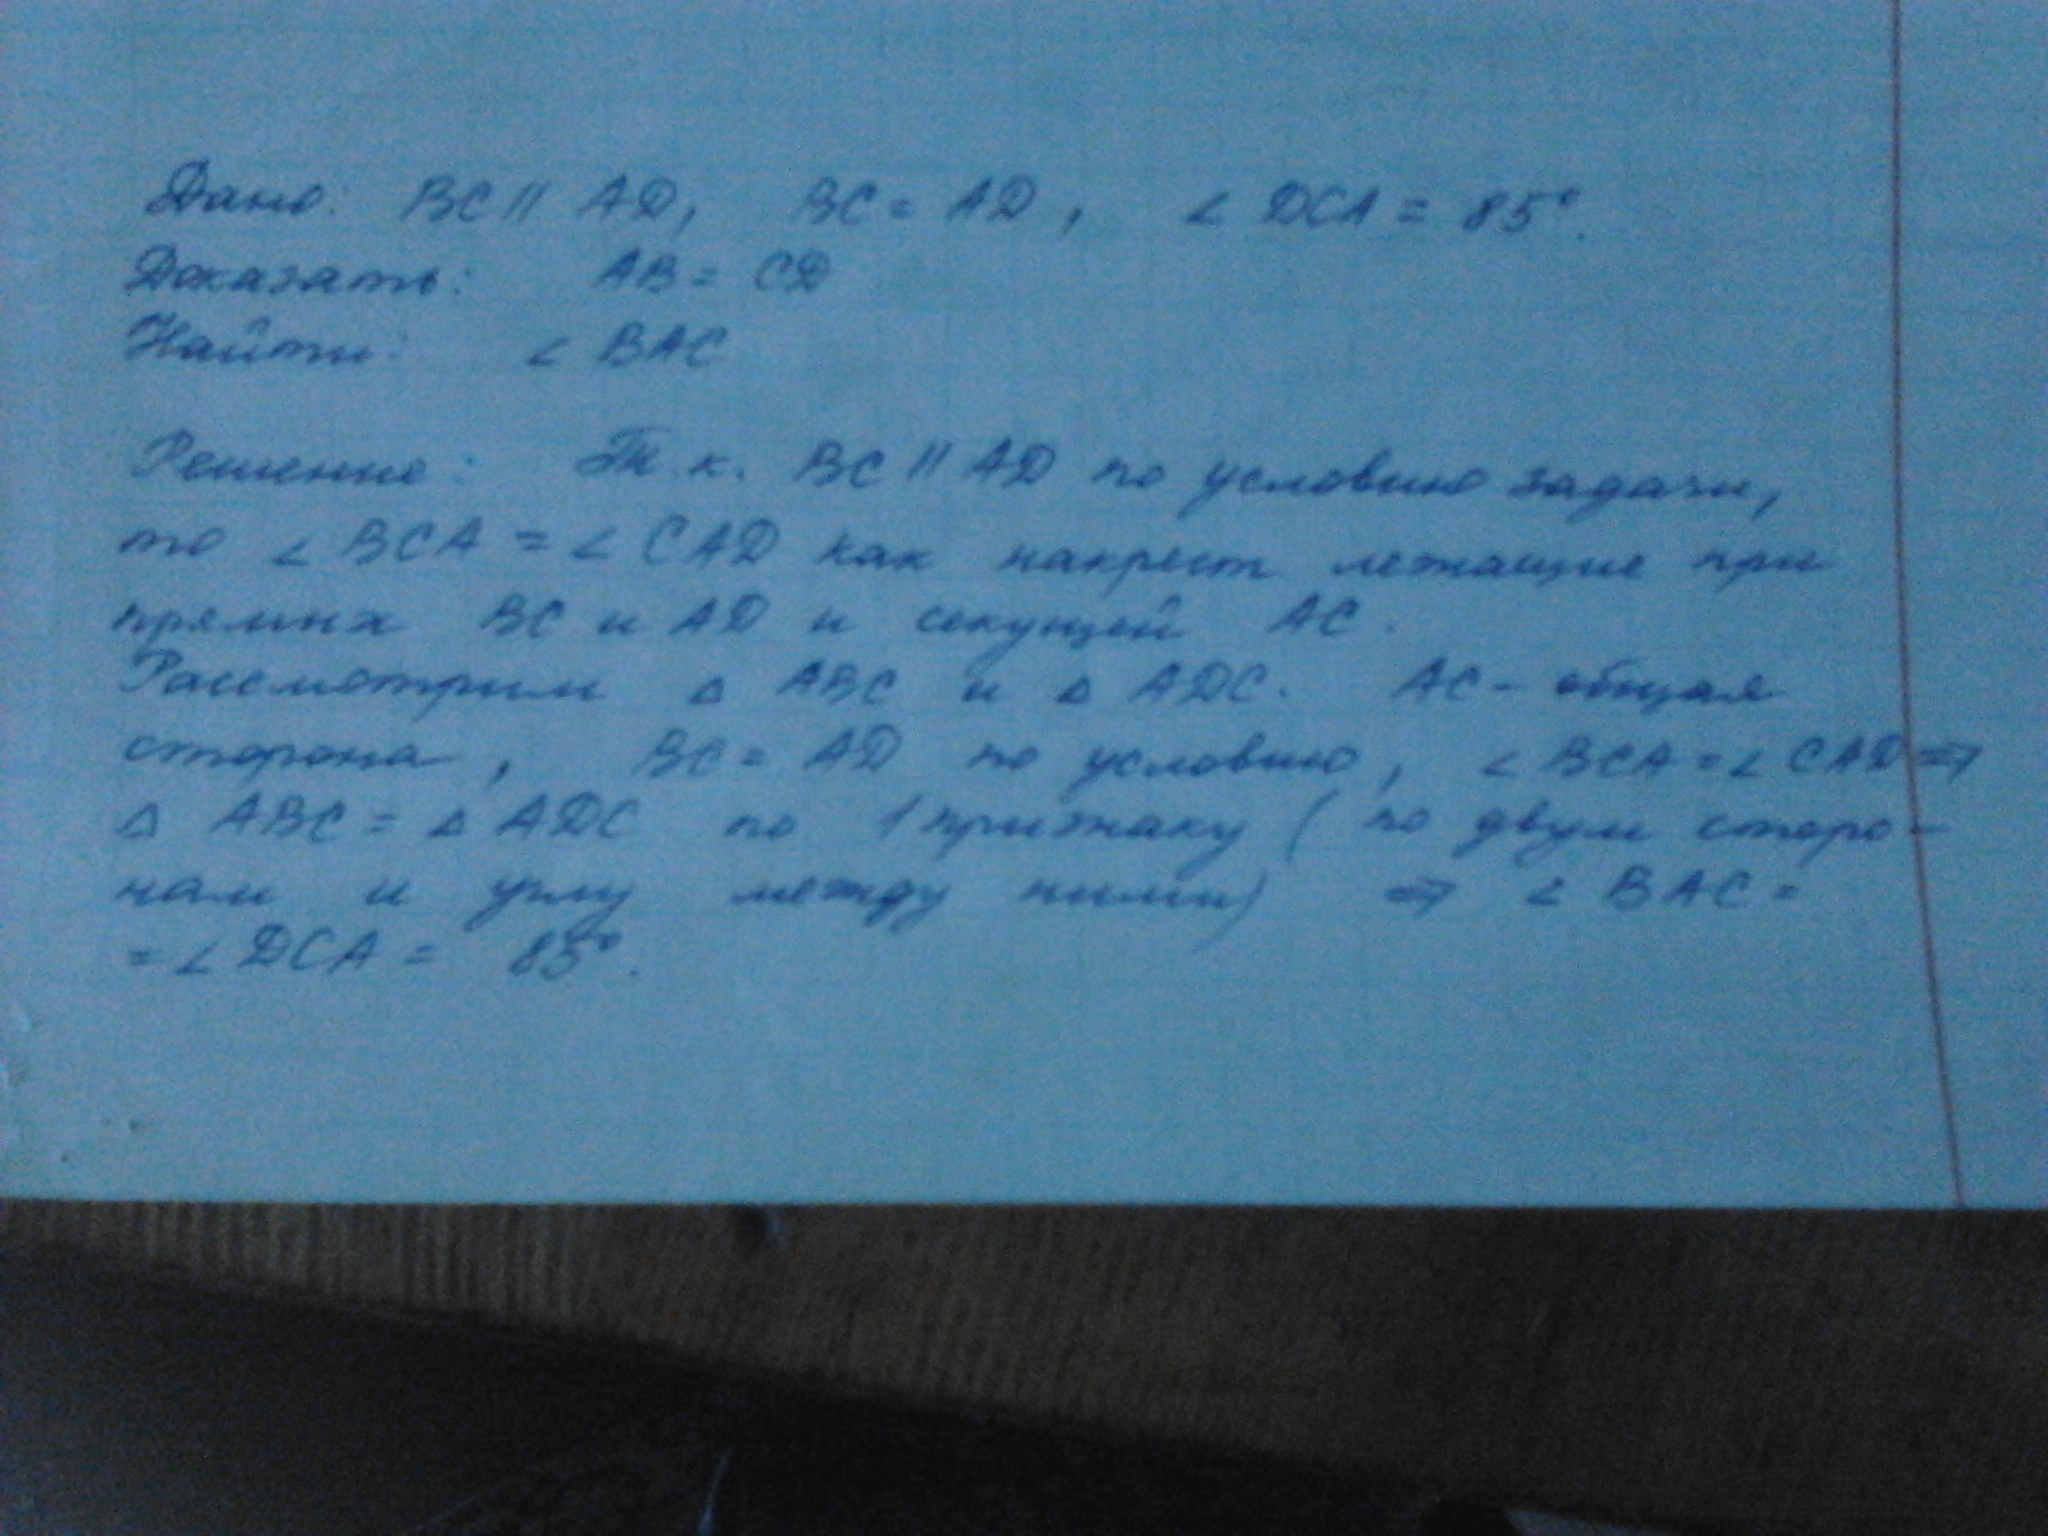 Дано: BC || AD, BC = AD, ∠ DCA = 85°.
Доказать: AB = CD
Найти: ∠ BAC
Решение: Т.к. BC || AD по условию задачи,
то ∠ BCA = ∠ CAD как накрест лежащие при
прямых BC и AD и секущей AC.
Рассмотрим △ ABC и △ ADC. AC - общая
сторона, BC = AD по условию, ∠ BCA = ∠ CAD ⇒
△ ABC = △ ADC по 1 признаку (по двум сторо-
нам и углу между ними) ⇒ ∠ BAC =
= ∠ DCA = 85°.